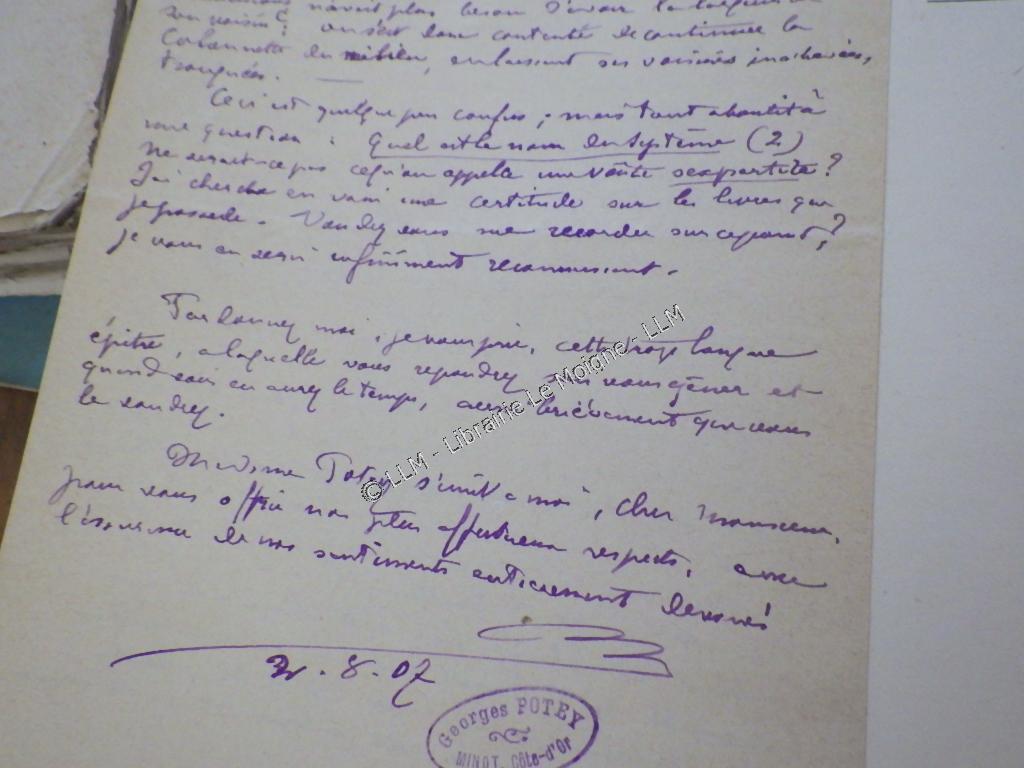 n'avait plus besoin d'avoir
son voisin ; on s'est donc contenté de continuer la
Colonnette du milieu, en laissant ses voisines inachevées,
tronquées. —
Ceci est quelque peu confus ; mais tout aboutit à
une question : Quel est le nom du système (2)
ne serait-ce pas ce qu'on appelle une voûte sexpartite ?
J'ai cherché en vain une certitude sur les livres que
je possède. Voudrez vous me sur ce point ?
je vous en serai infiniment reconnaissant.
Pardonnez moi, je vous prie, cette trop longue
épitre, à laquelle vous répondrez sans vous gêner et
quand vous en aurez le temps, aussi brièvement que vous
le voudrez.
Madame Potey s'unit à moi, cher Monsieur,
pour vous offrir nos plus affectueux respects, avec
l'assurance de nos sentiments entièrement dévoués
8.07
Georges POTEY
MINOT, Côte-d'Or
© LLM - Librairie Le Moigne - LLM